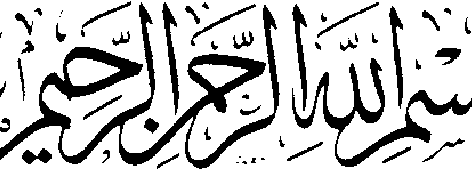 سْمِ اللَّهِ الرَّحْمَٰنِ الرَّحِيمِ